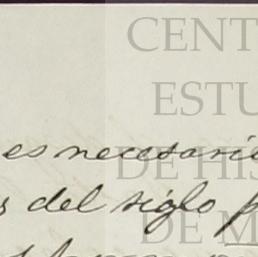 CENT
ESTU
es necesari
DE HIS
s del siglo
DE M